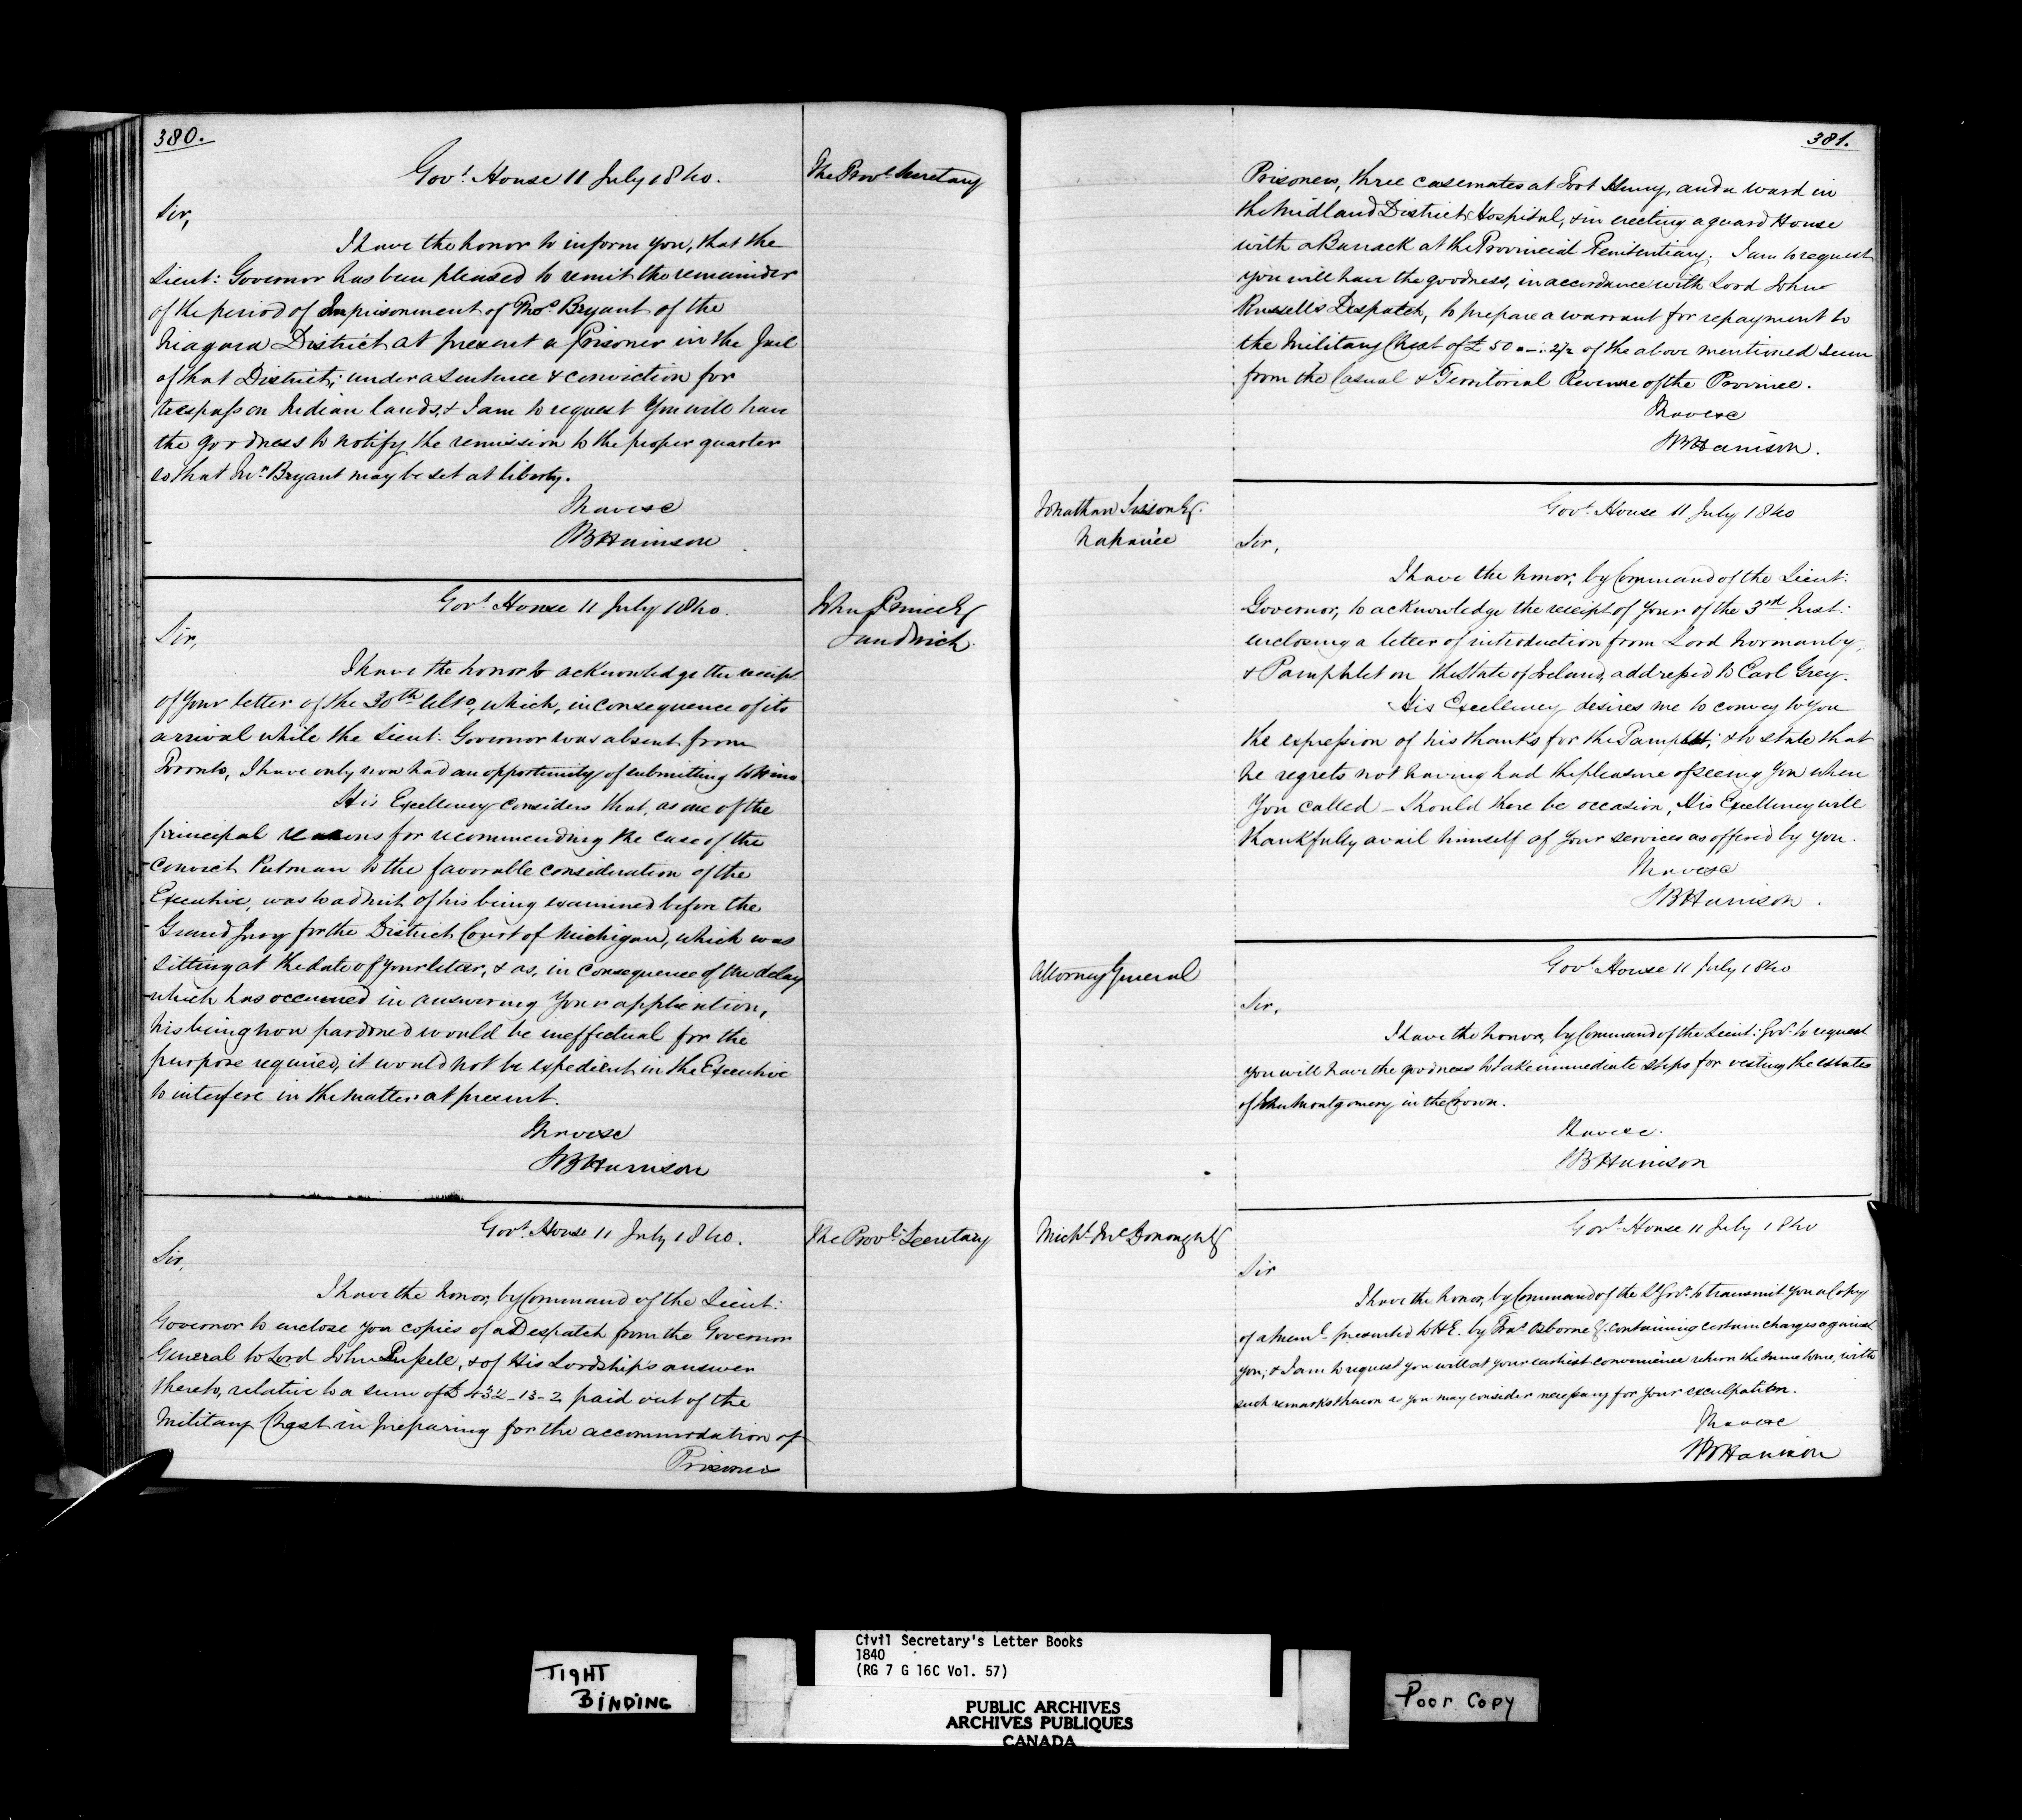 380.
Govt. House 11 July 1840.
The Provl. Secretary
Sir,
I have the honor to inform you, that the
Lieut: Governor has been pleased to remit the remainder
of the period of Imprisonment of Thos. Bryant of the
Niagara District at present a Prisoner in the Jail
of that District; under a sentence & conviction for
trespass on Indian lands, & I am to request You will have
the goodness to notify the remission to the proper quarter
so that Mr. Bryant may be set at liberty.
I have &c
SBHarrison
Govt. House 11 July 1840.
John Prince Esq
Sandwich.
Sir,
I have the honor to acknowledge the receipt
of Your letter of the 30th Ulto, which, in consequence of its
arrival while the Lieut: Governor was absent from
Toronto, I have only now had an opportunity of submitting to Him.
His Excellency considers that, as one of the
principal reasons for recommending the case of the
Convict Putman to the favorable consideration of the
Executive, was to admit of his being examined before the
Grand Jury for the District Court of Michigan, which was
sitting at the date of your letter, & as, in consequence of the delay
which has occurred in answering Your application,
his being now pardoned would be ineffectual for the
purpose required, it would not be expedient in the Executive
to interfere in the matter at present.
I have &c
SBHarrison
Govt. House 11 July 1840.
The Provl. Secretary
Sir,
I have the honor, by Command of the Lieut:
Governor to enclose you copies of a Despatch from the Governor
General to Lord John Russell, & of His Lordship's answer
thereto, relative to a sum of £432-13-2 paid out of the
Military Chest in preparing for the accommodation of
Prisoners
381.
Prisoners, three casemates at Fort Henry, and a ward in
the Midland District Hospital, & in erecting a guard House
with a Barrack at the Provincial Penitentiary. I am to request
you will have the goodness, in accordance with Lord John
Russells Despatch, to prepare a warrant for repayment to
the Military Chest of £50 - 2½ of the above mentioned sum
from the Casual & Territorial Revenue of the Province.
I have &c
SBHarrison.
Jonathan Sisson Esq.
Napanee
Govt. House 11 July 1840
Sir,
I have the honor, by Command of the Lieut:
Governor, to acknowledge the receipt of your of the 3rd Inst:
enclosing a letter of introduction from Lord Normanby,
& Pamphlet on the State of Ireland, addressed to Earl Grey.
His Excellency desires me to convey to You
the expression of his thanks for the Pamphlet; & to state that
he regrets not having had the pleasure of seeing You when
You called - Should there be occasion, His Excellency will
thankfully avail himself of Your services as offered by You.
I have &c
SBHarrison.
Attorney General
Govt. House 11 July 1840
Sir,
I have the honor, by Command of the Lieut: Govr. to request
you will have the goodness to take immediate steps for vesting the estates
of John Montgomery in the Crown.
I have &c.
SBHarrison
Michl. McDonough Esq
Govt. House 11 July 1840
Sir
I have the honor, by Command of the Lt Govr. to transmit You a Copy
of a Meml. presented to H.E. by Fras. Osborne Esq. containing certain charges against
you; & I am to request you will at your earliest convenience return the same to me, with
such remarks thereon as you may consider necessary for your exculpation.
I have &c
SBHarrison
TIGHT
BINDING
Civil Secretary's Letter Books
1840
(RG 7 G 16C Vol. 57)
PUBLIC ARCHIVES
ARCHIVES PUBLIQUES
CANADA
Poor Copy